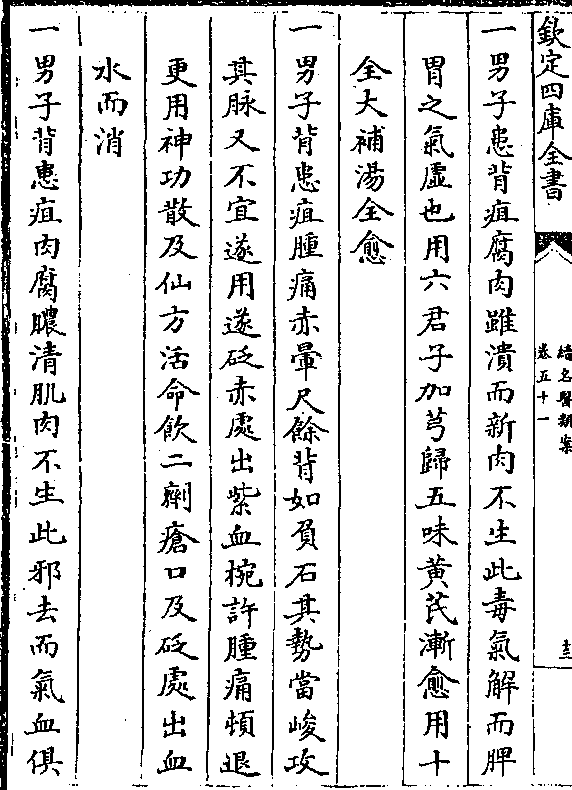 欽定四庫全書
續名醫類案
卷五十一
十三
一男子患背疽腐肉雖潰而新肉不生此毒氣解而脾
胃之氣虛也用六君子加芎歸五味黃芪漸愈用十
全大補湯全愈
一男子背患疽腫痛赤暈尺餘背如負石其勢當峻攻
其脉又不宜遂用遂砭赤處出紫血椀許腫痛頓退
更用神功散及仙方活命飲二劑瘡口及砭處出血
水而消
一男子背患疽肉腐膿清肌肉不生此邪去而氣血俱